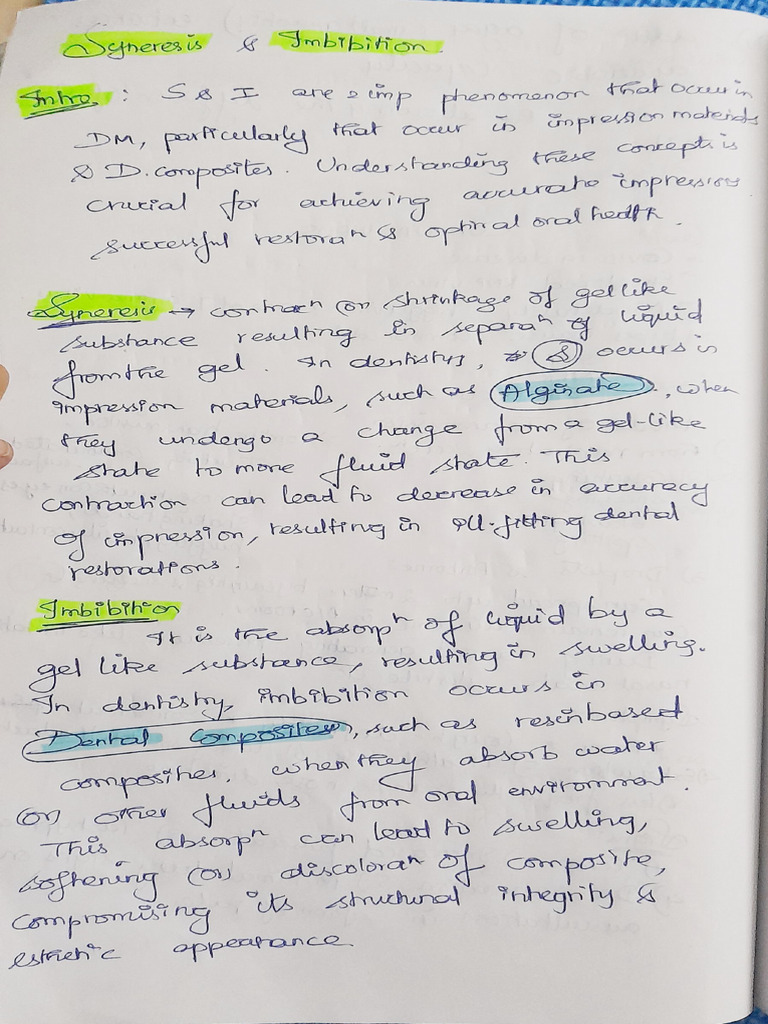 Syneresis & Imbibition.
Intro : S & I are 2 imp phenomenon that occur in
DM, particularly that occur in impression materials
& D. composites. Understanding these concepts is
crucial for achieving accurate impression
successful restoraⁿ & optimal oral health.
Syneresis → contracⁿ (or) shrinkage of gel like
substance resulting in separaⁿ of liquid
from the gel. In dentistry, (S) occurs in
impression materials, such as Alginate, when
they undergo a change from a gel-like
state to more fluid state. This
contraction can lead to decrease in accuracy
of impression, resulting in ill-fitting dental
restorations.
Imbibition
It is the absorpⁿ of liquid by a
gel like substance, resulting in swelling.
In dentistry, imbibition occurs in
Dental Composites, such as resinbased
composites, when they absorb water
(or) other fluids from oral environment.
This absorpⁿ can lead to swelling,
softening (or) discoloraⁿ of composite,
compromising its structural integrity &
esthetic appearance.